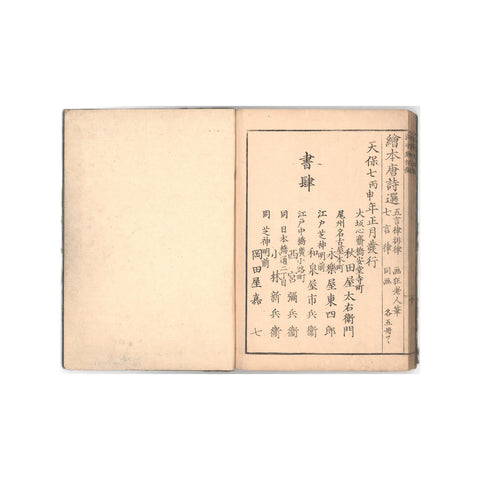 繪本唐詩選
五言律排律 画狂老人筆
七言律 同画
各五冊ツヽ
天保七丙申年正月發行
書肆
大坂心齋橋安堂寺町
秋田屋太右衛門
尾州名古屋本町
永樂屋東四郎
江戸芝神明前
和泉屋市兵衛
江戸中橋廣小路町
西宮彌兵衛
同日本橋通二丁目
小林新兵衛
同芝神明前
岡田屋嘉七